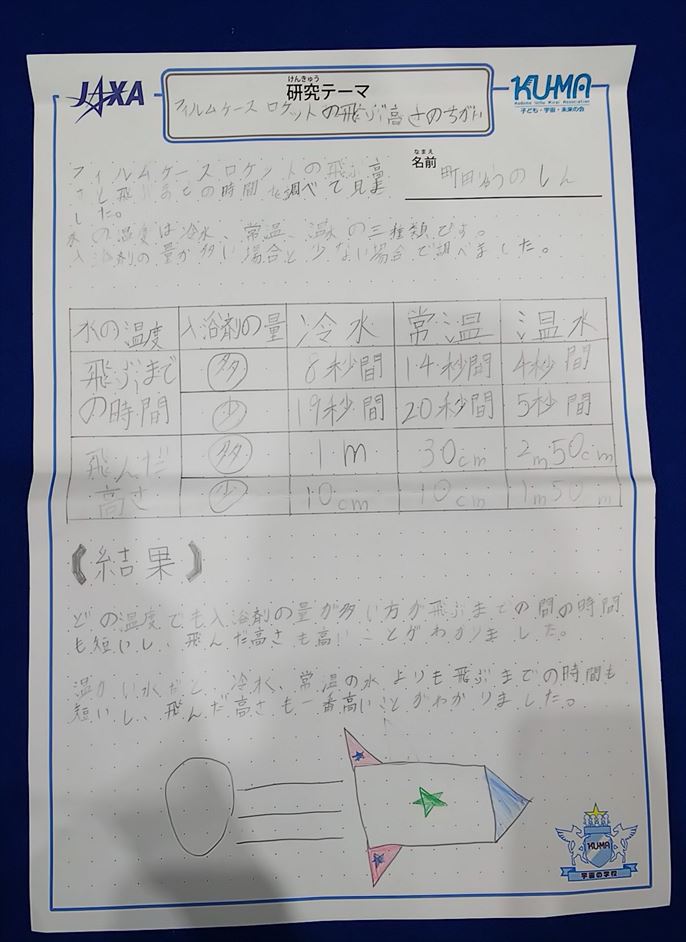 JAXA
けんきゅう
研究テーマ
KU-MA
Kodomo Uchu Mirai Association
子ども・宇宙・未来の会
フィルムケースロケットの飛ぶ高さのちがい
なまえ
名前
町田りゅうのしん
フィルムケースロケットの飛ぶ高
さと飛ぶまでの時間を調べて見ま
した。
水の温度は冷水、常温、温水の三種類です。
入浴剤の量が多い場合と少ない場合で調べました。
水の温度 入浴剤の量 冷水 常温 温水
飛ぶまでの時間 多 8秒間 14秒間 4秒間
少 19秒間 20秒間 5秒間
飛んだ高さ 多 1m 30cm 2m50cm
少 10cm 10cm 1m50m
《結果》
どの温度でも入浴剤の量が多い方が飛ぶまでの間の時間
も短いし、飛んだ高さも高いことがわかりました。
温かい水だと、冷水、常温の水よりも飛ぶまでの時間も
短いし、飛んだ高さも一番高いことがわかりました。
KUMA
宇宙の学校